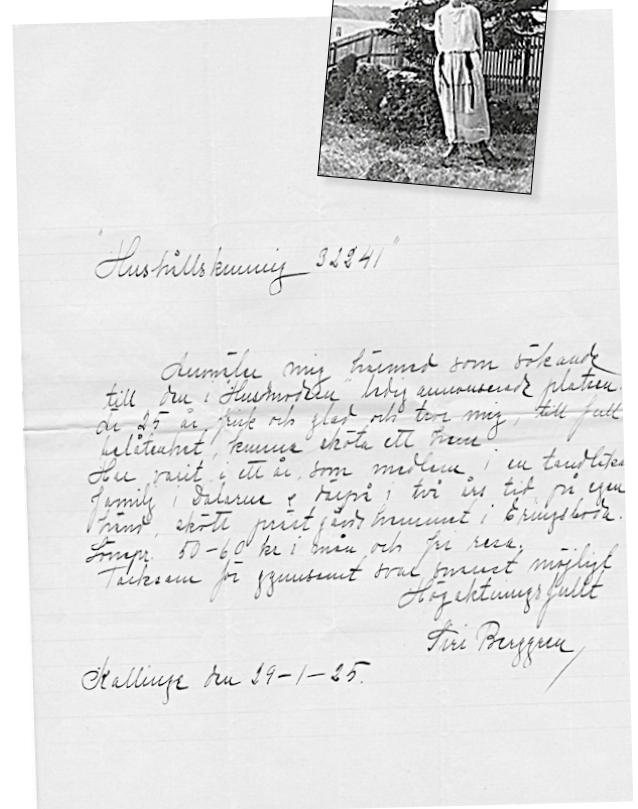 "Hushållskunnig 32241"
Anmäler mig härmed som sökande
till den i "Husmodern" ledig annonserade platsen.
Är 25 år, frisk och glad och tror mig, till full
belåtenhet, kunna sköta ett hem
Har varit i ett år, som medlem i en tandläkare
familj i Dalarne & därpå i två års tid på egen
hand, skött prästgårdshemmet i Eringsboda.
50-60 kr i mån och fri resa.
Tacksam för gynnsamt svar snarast möjligt
Högaktningsfullt
Siri Berggren
Kallinge den 29-1-25.